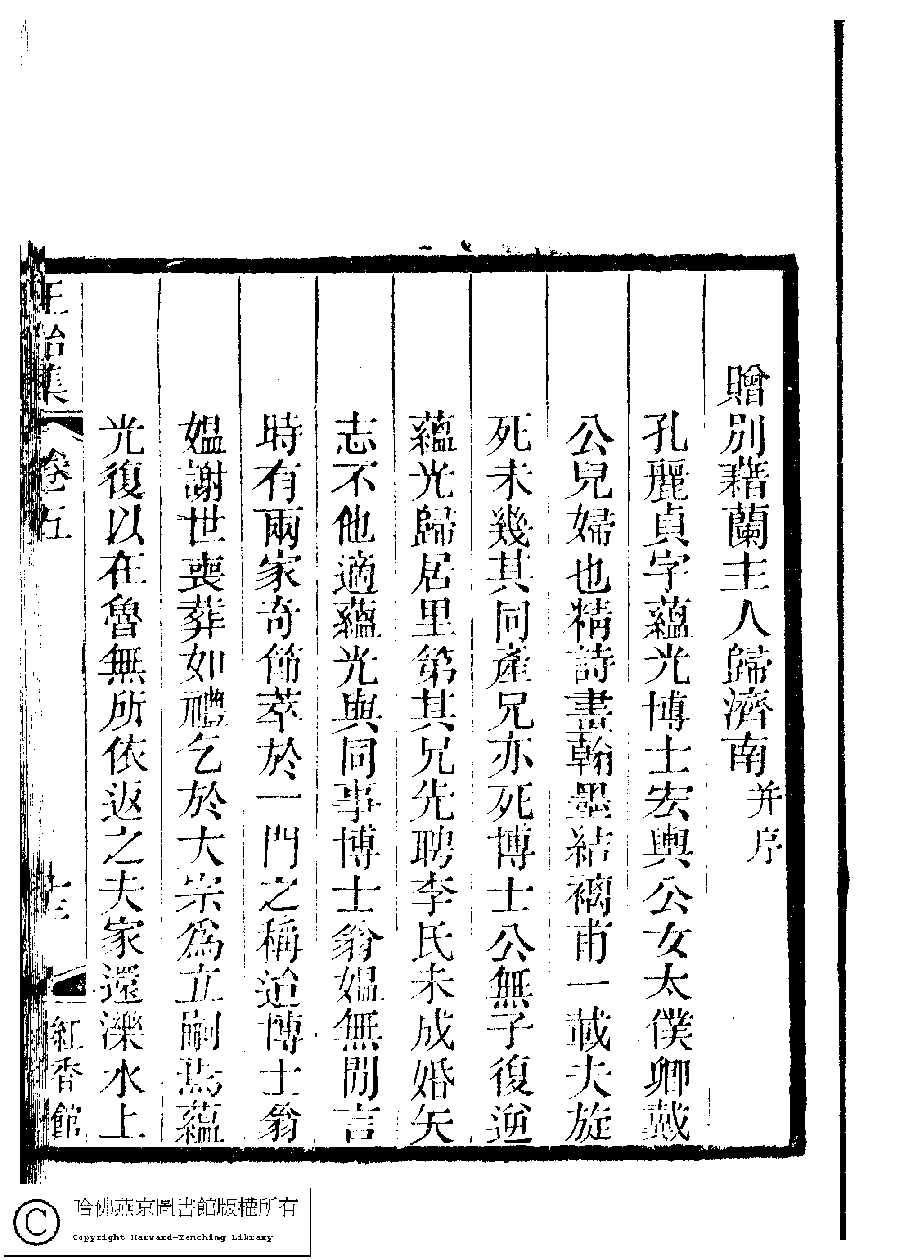 贈別藉蘭主人歸濟南并序
孔麗貞字蘊光博士宏輿公女太僕卿戴
公兒婦也精詩書翰墨結褵甫一載夫旋
死未幾其同產兄亦死博士公無子復迎
蘊光歸居里第其兄先聘李氏未成婚矢
志不他適蘊光與同事博士翁媼無閒言
時有兩家奇節萃於一門之稱迨博士翁
媼謝世喪葬如禮乞於大宗為立嗣焉蘊
光復以在魯無所依返之夫家還濼水上
正始集
卷五
十三
紅香館
哈佛燕京圖書館版權所有
Copyright Harvard-Yenching Library